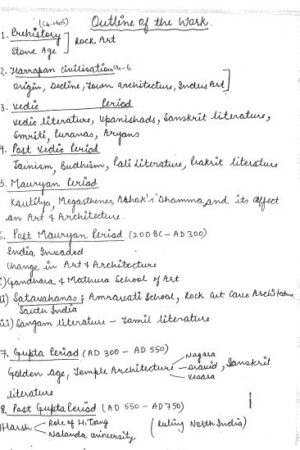 (Ca. 1405)
Outline of the Work.
1. Prehistory
Stone Age ] Rock Art
2. Harrapan civilisation Ch-6
Origin, Decline, Town architecture, Indus Art]
3. Vedic Period
Vedic literature, Upanishads, Sanskrit literature,
Smriti, Puranas, Aryans
4. Post Vedic Period
Jainism, Budhism, Pali Literature, Prakrit literature
5. Mauryan Period
Kautilya, Megasthenes, Ashok's Dhamma, and its affect
on Art & Architecture.
6. Post Mauryan Period (200 BC - AD 300)
India Invaded
Change in Art & Architecture
i) Gandhara & Mathura School of Art
ii) Satavahanas; Amravati School, Rock cut Cave Architecture
South India
iii) Sangam literature - Tamil literature
7. Gupta Period (AD 300 - AD 550)
Golden age, Temple Architecture - Nagara Dravid, Vesara Sanskrit
literature
8. Post Gupta Period (AD 550 - AD 750)
Harsh Role of H. Tsang (ruling North India)
Nalanda university